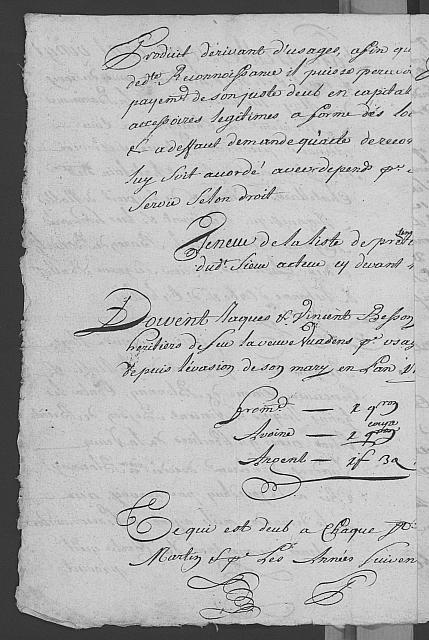 Produit dérivant d'usages, afin qu
ded.te Reconnoissance il puisse percevoi
payem.t de son juste deub en capital
accessoires legitimes a forme dés lo
& a deffaut demande qu'acte de recon
luy soit accordé avec depend p.r
servir selon droit
Teneur de la liste de pret
dud.t Sieur acteur cy devant
Doivent Jaques & Vincent Besson
heritiers de feu la veuve usa
depuis l'evasion de son mary en l'an
From.t — 1 qron
Avoine — 1 qron
coupe
Argent — 1f 3a
Ce qui est deub a Chaque St
Martin & p.r Les Années Suiven